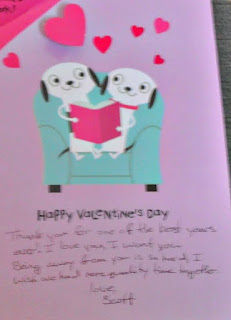 Happy Valentine's Day
Thank you for one of the best years
ever. I love you, I want you.
Being away from you is so hard, I
wish we had more quality time together.
love
Scott